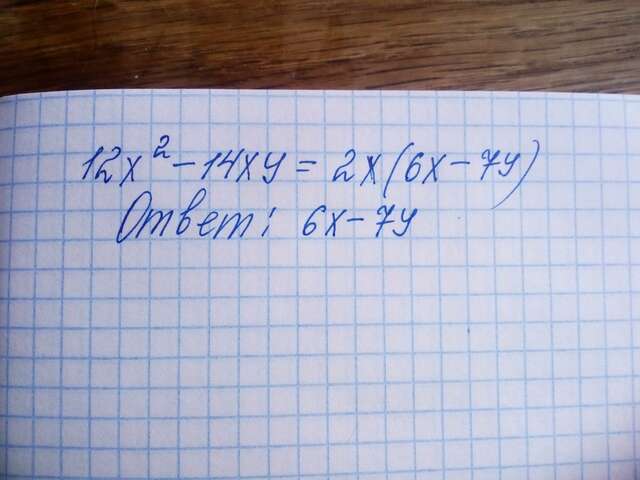 12x² - 14xy = 2x(6x - 7y)
Ответ: 6x - 7y